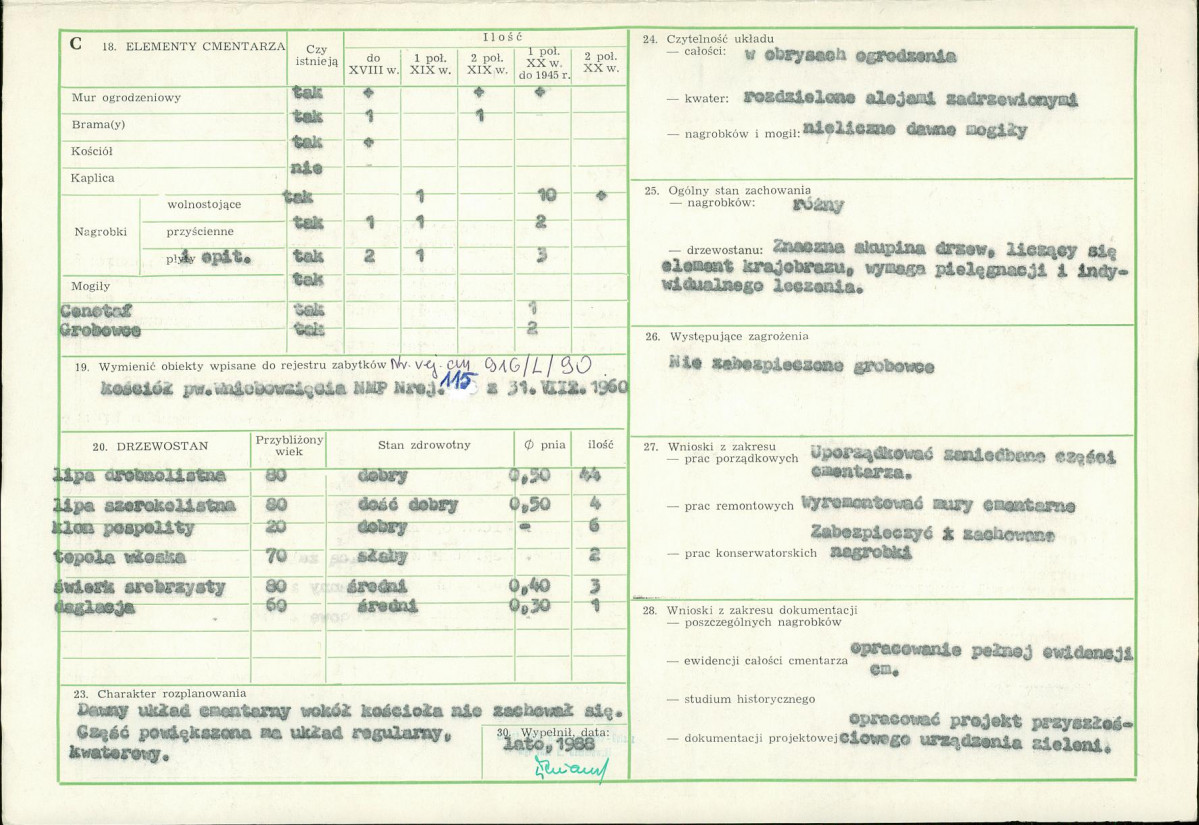 C 18. ELEMENTY CMENTARZA Czy istnieją Ilość
do XVIII w. 1 poł. XIX w. 2 poł. XIX w. 1 poł. XX w. do 1945 r. 2 poł. XX w.
Mur ogrodzeniowy tak + + +
Brama(y) tak 1 1
Kościół tak +
Kaplica nie -
Nagrobki wolnostojące tak 1 10 +
przyścienne tak 1 1 2
płyty i epit. tak 2 1 3
Mogiły tak
Cenotaf tak 1
Grobowce tak 2
19. Wymienić obiekty wpisane do rejestru zabytków Nr. rej. cm 916/L/90
kościół pw.Wniebowzięcia NMP Nrej. 115 z 31. VIII. 1960
20. DRZEWOSTAN Przybliżony wiek Stan zdrowotny Ø pnia ilość
lipa drobnolistna 80 dobry 0,50 44
lipa szerokolistna 80 dość dobry 0,50 4
klon pospolity 20 dobry - 6
topola włoska 70 słaby 2
świerk srebrzysty 80 średni 0,40 3
daglezja 60 średni 0,30 1
23. Charakter rozplanowania
Dawny układ cmentarny wokół kościoła nie zachował się.
Część powiększona ma układ regularny,
kwaterowy.
30. Wypełnił, data:
lato, 1988
24. Czytelność układu
— całości: w obrysach ogrodzenia
— kwater: rozdzielone alejami zadrzewionymi
— nagrobków i mogił: nieliczne dawne mogiły
25. Ogólny stan zachowania
— nagrobków: różny
— drzewostanu: Znaczna skupina drzew, liczący się
element krajobrazu, wymaga pielęgnacji i indy-
widualnego leczenia.
26. Występujące zagrożenia
Nie zabezpieczone grobowce
27. Wnioski z zakresu
— prac porządkowych Uporządkować zaniedbane części
cmentarza.
— prac remontowych Wyremontować mury cmentarne
Zabezpieczyć zachowane
— prac konserwatorskich nagrobki
28. Wnioski z zakresu dokumentacji
— poszczególnych nagrobków
— ewidencji całości cmentarza opracowanie pełnej ewidencji
cm.
— studium historycznego
opracować projekt przyszłoś-
— dokumentacji projektowej ciowego urządzenia zieleni.